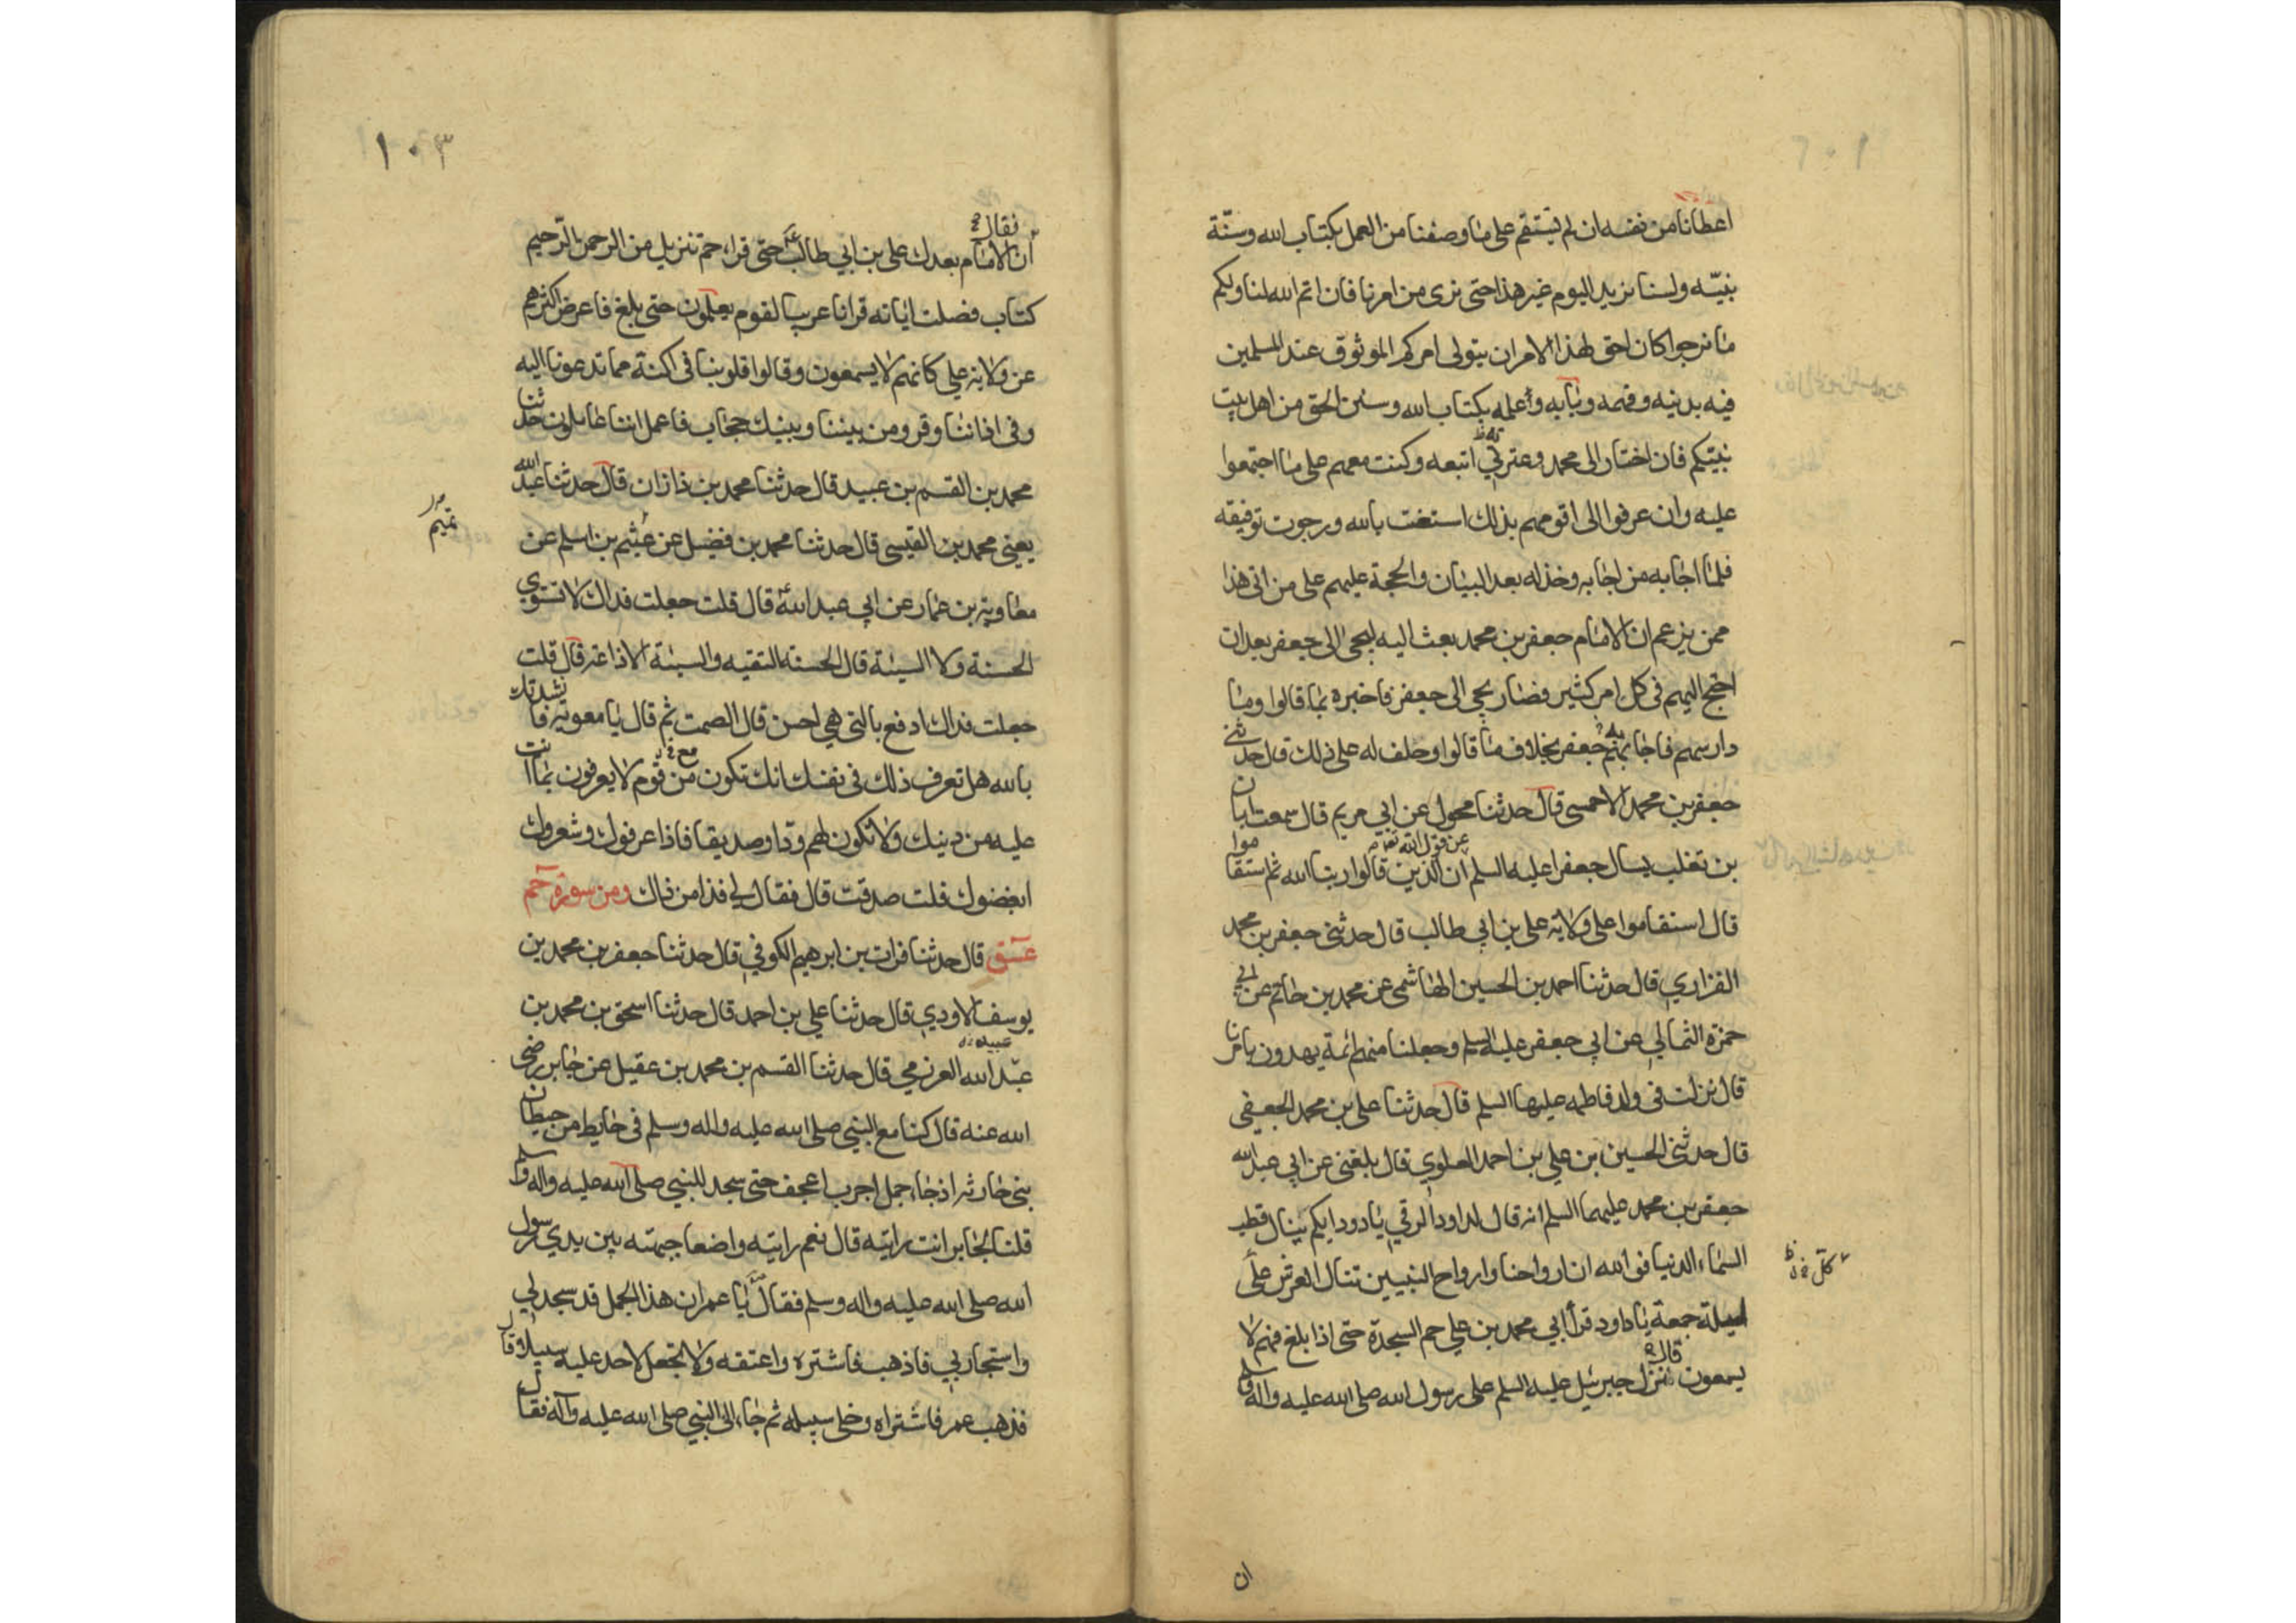 اعطانا من نفسه ان لم يستقم على ما وصفنا من العمل بكتاب الله وسنّة
نبيّه ولسنا نريد اليوم غير هذا حتى نرى من امرنا فان اتم الله لنا ولكم
ما نرجوا كان احق لهذا الامر ان يتولى امركم الموثوق عند المسلمين
فيه بدينه وفهمه وبابه وأعلمه بكتاب الله وسنن الحق من اهل بيت
نبيّكم فان اختار الى محمد وعترتي اتبعه وكنت معهم على ما اجتمعوا
عليه وان عرفوا الى اقومهم بذلك استعنت بالله ورجوت توفيقه
فلما اجابه من اجابه وخذله بعد البيان والحجة عليهم على من اتى هذا
ممن يزعم ان الامام جعفر بن محمد بعث اليه ليجى الى جعفر بعد ان
احتج اليهم فى كل امر كثير فصار يجى الى جعفر فاخبره بما قالوا وما
دار بينهم فاجابهم جعفر بخلاف ما قالوا وحلف له على ذلك قال حدثنى
جعفر بن محمد الاحمسى قال حدثنا محول عن ابي مريم قال سمعت ابان
عن قول الله تعا
بن تغلب يسال جعفرا عليه السلم ان الذين قالوا ربنا الله ثم استقاموا
قال استقاموا على ولاية على بن ابي طالب قال حدثنى جعفر بن محمد
الفزاري قال حدثنا احمد بن الحسين الهاشمى عن محمد بن حاتم عن ابي
حمزة الثمالي عن ابي جعفر عليه السلم وجعلنا منهم ائمة يهدون بامرنا
قال نزلت فى ولد فاطمه عليها السلم قال حدثنا على بن محمد الجعفى
قال حدثنى الحسين بن علي بن احمد العلوي قال بلغنى عن ابي عبد الله
جعفر بن محمد عليهما السلم انه قال لداود الرقي يا دود ايكم ينال قطب
السماء الدنيا فوالله ان ارواحنا وارواح النبيين تنال العرش
كل
ليلة جمعة يا داود قرأ ابي محمد بن علي حم السجدة حتى اذا بلغ فهم لا
قال
يسمعون نزل جبرئيل عليه السلم على رسول الله صلى الله عليه وآله وسلم
ان
١٠٣
فقال
ان الامام بعدك على بن ابي طالب حتى قراء حم تنزيل من الرحمن الرحيم
كتاب فصلت اياته قرانا عربيا لقوم يعلمون حتى بلغ فاعرض اكثرهم
عن ولاية علي كانهم لا يسمعون وقالوا قلوبنا فى اكنة مما تدعونا اليه
وفى اذاننا وقر ومن بيننا وبينك حجاب فاعمل اننا عاملون حدثنا
محمد بن القسم بن عبيد قال حدثنا محمد بن ذازان قال حدثنا عبد الله
يعنى محمد بن القيسى قال حدثنا محمد بن فضيل عن عثيم بن اسلم عن
معاوية بن عمار عن ابي عبد الله قال قلت جعلت فداك لا تستوي
الحسنة ولا السيئة قال الحسنة التقيه والسيئة الاذاعة قال قلت
جعلت فداك ادفع بالتى هي احسن قال الصمت ثم قال يا معويه فانشدتك
بالله هل تعرف ذلك فى نفسك انك تكون من قوم لا يعرفون بما انت
مع
عليه من دينك ولا تكون لهم ودا وصديقا فاذا عرفوك وشعروك
ابغضوك قلت صدقت قال فقال لي فذا من ذاك ومن سورة حم
عسق قال حدثنا فرات بن ابرهيم الكوفي قال حدثنا جعفر بن محمد بن
يوسف الاودي قال حدثنا علي بن احمد قال حدثنا اسحق بن محمد بن
عبيد
عبد الله العزرمي قال حدثنا القسم بن محمد بن عقيل عن جابر رضى
الله عنه قال كنا مع النبي صلى الله عليه واله وسلم فى حايط من حيطان
بنى حارثه اذ جاء جمل اجرب اعجف حتى سجد للنبي صلى الله عليه واله وسلم
قلنا لجابر انت رايته قال نعم رايته واضعا جبهته بين يدي رسول
الله صلى الله عليه واله وسلم فقال يا عمر ان هذا الجمل قد سجد لي
واستجار بي فاذهب فاشتره واعتقه ولا تجعل لاحد عليه سبيلا قال
فذهب عمر فاشتراه وخلى سبيله ثم جاء الى النبي صلى الله عليه وآله فقال